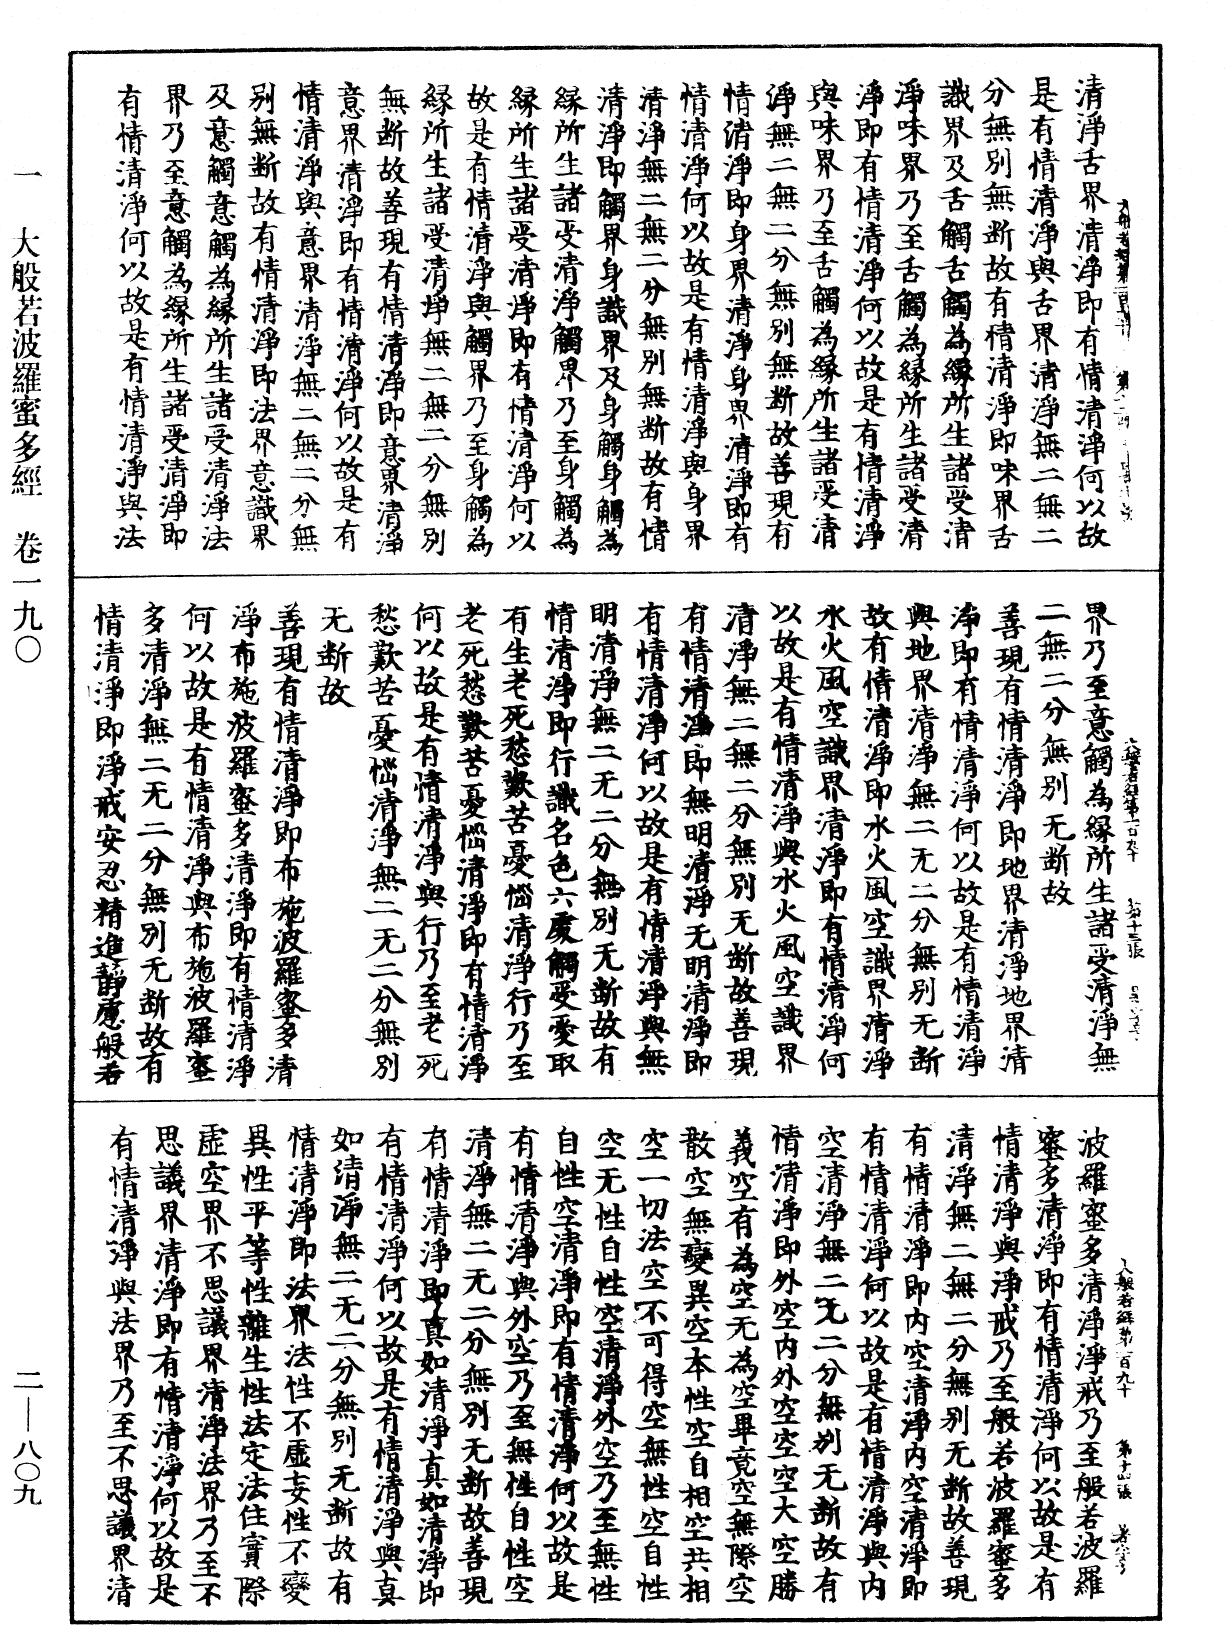 清淨舌界清淨即有情清淨何以故
是有情清淨與舌界清淨無二無二
分無別無断故有情清淨即味界舌
識界及舌觸舌觸為縁所生諸受清
淨味界乃至舌觸為縁所生諸受清
淨即有情清淨何以故是有情清淨
與味界乃至舌觸為縁所生諸受清
淨無二無二分無別無断故善現有
情清淨即身界清淨身界清淨即有
情清淨何以故是有情清淨與身界
清淨無二無二分無別無断故有情
清淨即觸界身識界及身觸身觸為
縁所生諸受清淨觸界乃至身觸為
縁所生諸受清淨即有情清淨何以
故是有情清淨與觸界乃至身觸為
縁所生諸受清淨無二無二分無別
無断故善現有情清淨即意界清淨
意界清淨即有情清淨何以故是有
情清淨與意界清淨無二無二分無
別無断故有情清淨即法界意識界
及意觸意觸為縁所生諸受清淨法
界乃至意觸為縁所生諸受清淨即
有情清淨何以故是有情清淨與法
界乃至意觸為縁所生諸受清淨無
二無二分無別无断故
善現有情清淨即地界清淨地界清
淨即有情清淨何以故是有情清淨
與地界清淨無二无二分無別无断
故有情清淨即水火風空識界清淨
水火風空識界清淨即有情清淨何
以故是有情清淨與水火風空識界
清淨無二無二分無別无断故善現
有情清淨即無明清淨无明清淨即
有情清淨何以故是有情清淨與無
明清淨無二无二分無別无断故有
情清淨即行識名色六處觸受愛取
有生老死愁歎苦憂惱清淨行乃至
老死愁歎苦憂惱清淨即有情清淨
何以故是有情清淨與行乃至老死
愁歎苦憂惱清淨無二无二分無別
无断故
善現有情清淨即布施波羅蜜多清
淨布施波羅蜜多清淨即有情清淨
何以故是有情清淨與布施波羅蜜
多清淨無二无二分無別无断故有
情清淨即淨戒安忍精進靜慮般若
波羅蜜多清淨淨戒乃至般若波羅
蜜多清淨即有情清淨何以故是有
情清淨與淨戒乃至般若波羅蜜多
清淨無二無二分無別无断故善現
有情清淨即内空清淨内空清淨即
有情清淨何以故是有情清淨與内
空清淨無二无二分無別无断故有
情清淨即外空内外空空空大空勝
義空有為空无為空畢竟空無際空
散空無變異空本性空自相空共相
空一切法空不可得空無性空自性
空无性自性空清淨外空乃至無性
自性空清淨即有情清淨何以故是
有情清淨與外空乃至無性自性空
清淨無二无二分無別无断故善現
有情清淨即真如清淨真如清淨即
有情清淨何以故是有情清淨與真
如清淨無二无二分無別无断故有
情清淨即法界法性不虛妄性不變
異性平等性離生性法定法住實際
虛空界不思議界清淨法界乃至不
思議界清淨即有情清淨何以故是
有情清淨與法界乃至不思議界清
大般若經第一百九十 第十三張
大般若經第一百九十 第十四張
一 大般若波羅蜜多經 卷一九〇
二—八〇九